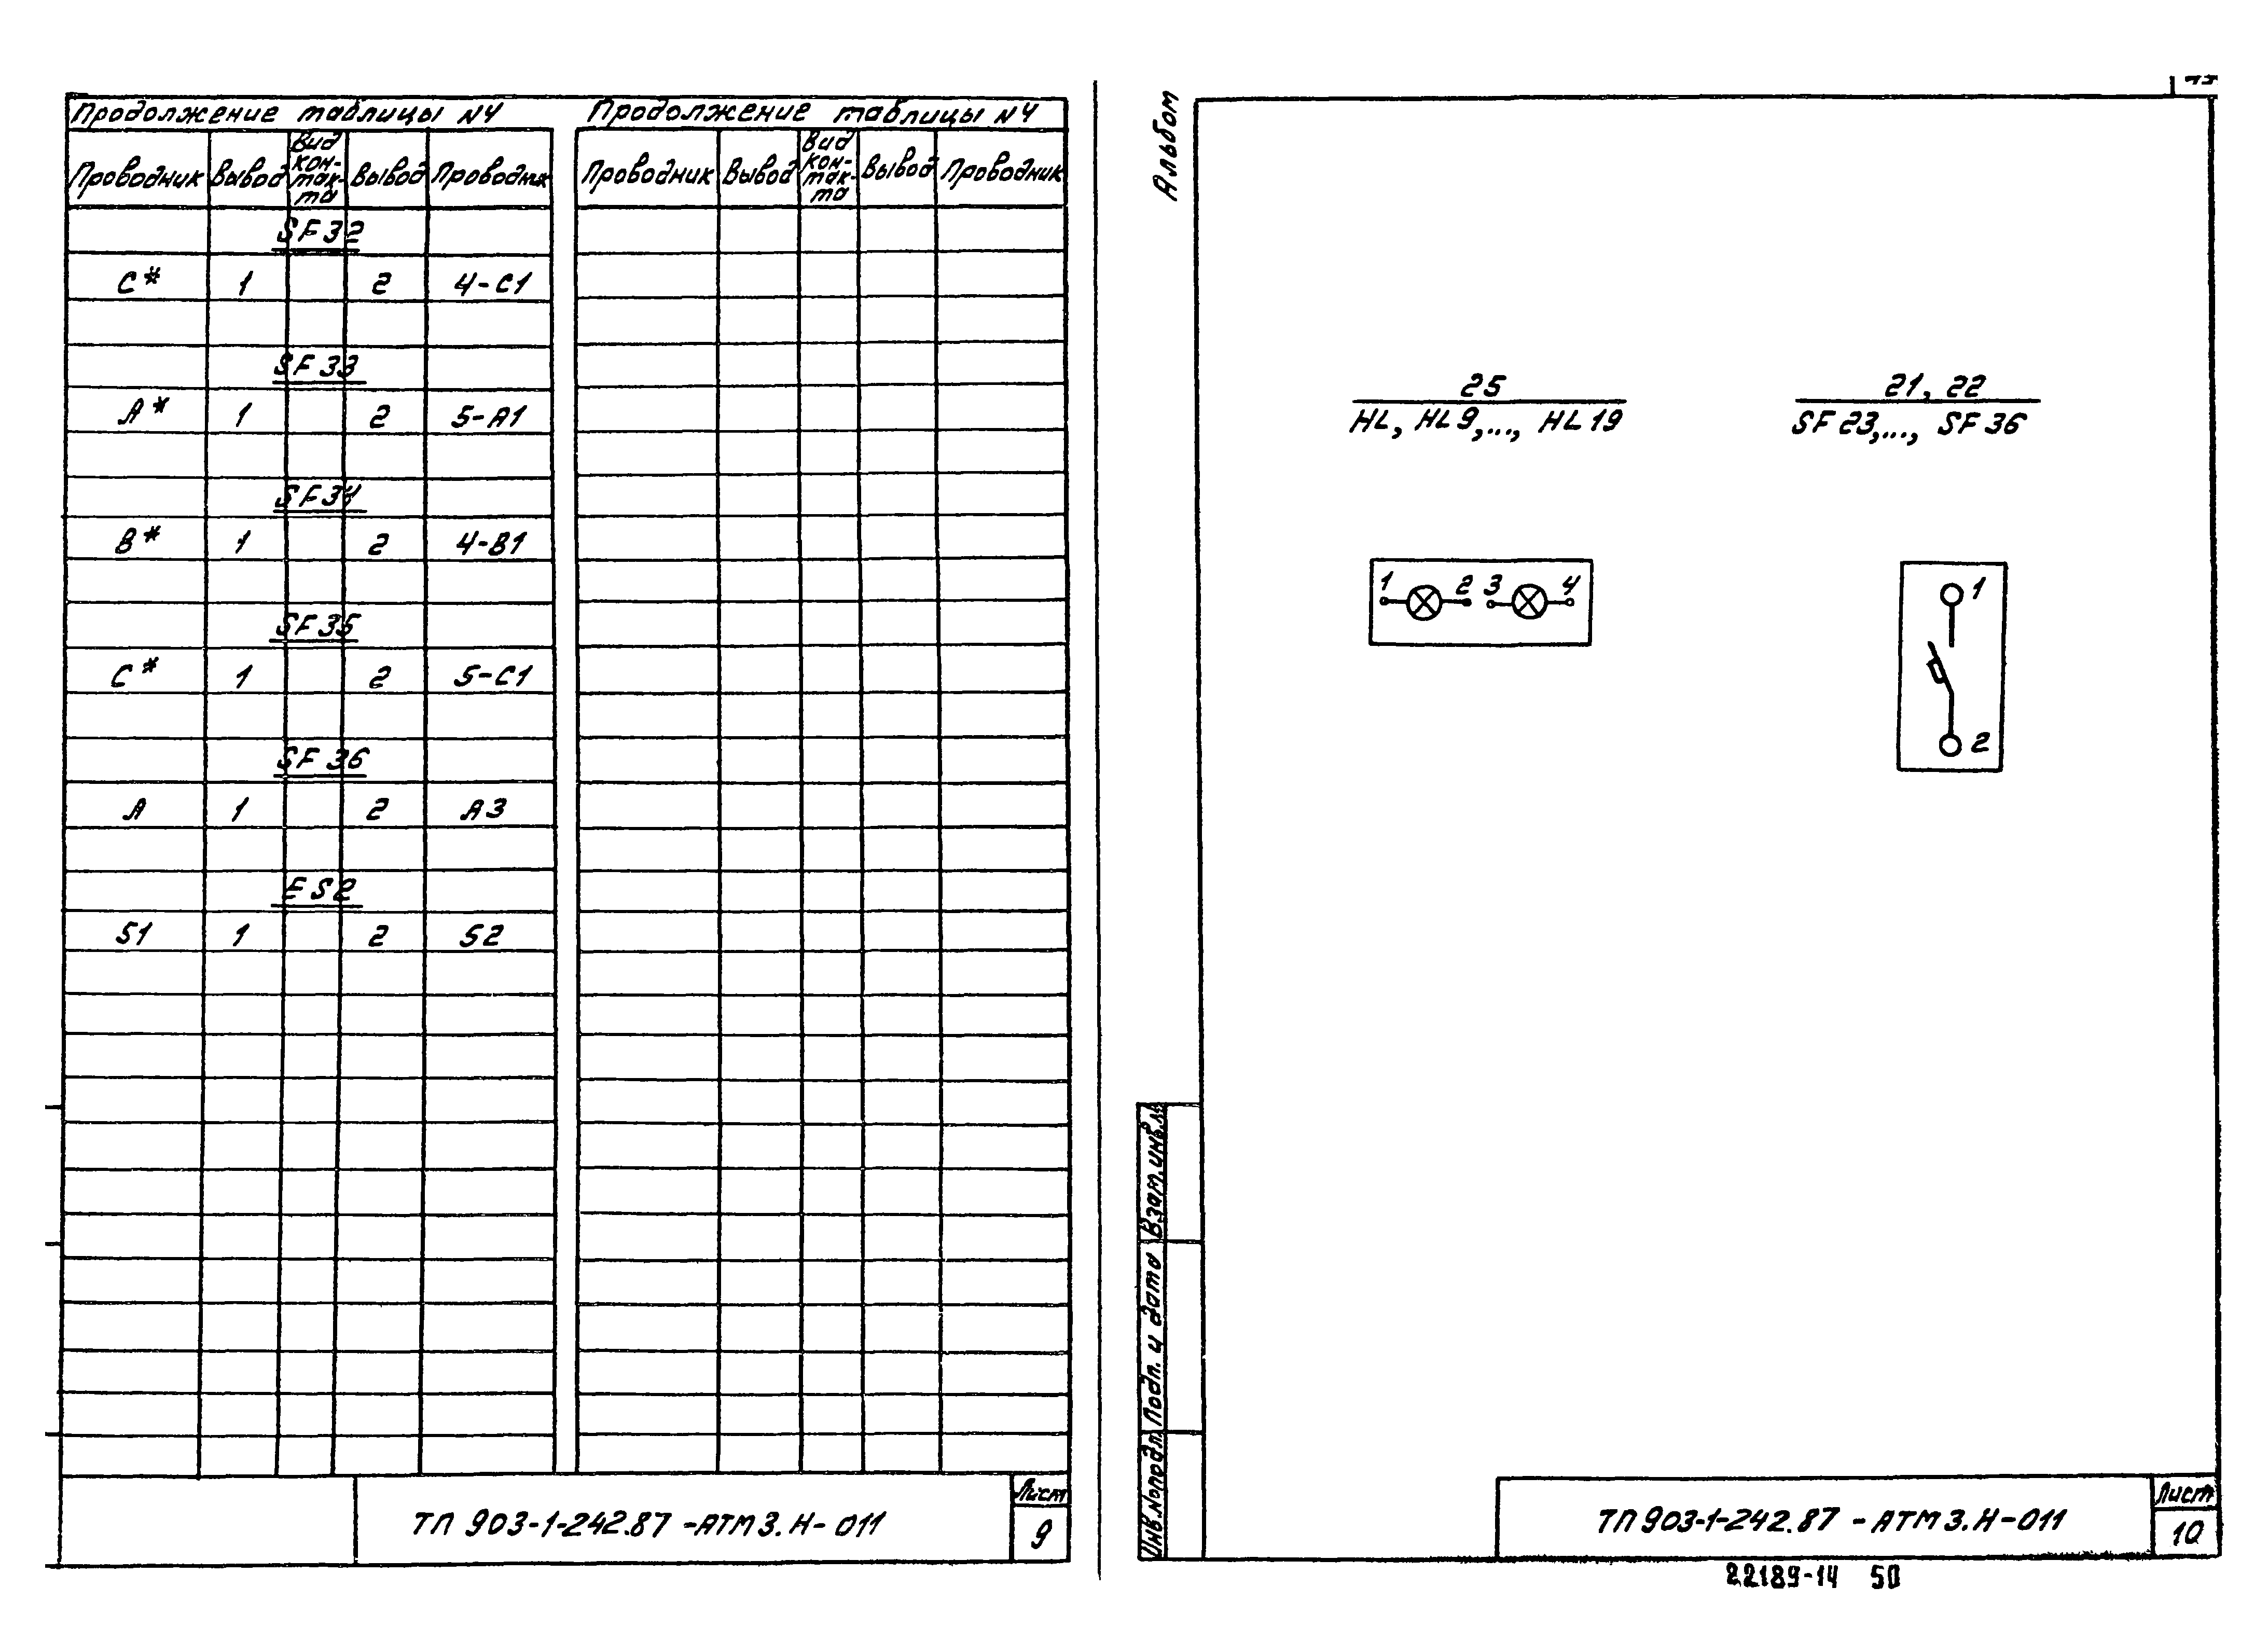 Продолжение таблицы N4
Проводник Вывод Вид кон-так-та Вывод Проводник
SF32
C* 1 2 4-C1
SF33
A* 1 2 5-A1
SF34
B* 1 2 4-B1
SF35
C* 1 2 5-C1
SF36
A 1 2 A3
ES2
51 1 2 52
Продолжение таблицы N4
Проводник Вывод Вид кон-так-та Вывод Проводник
ТП 903-1-242.87 -АТМ3.Н-011
Лист
9
Альбом
25
HL, HL9,..., HL19
21, 22
SF23,..., SF36
1 2 3 4
1
2
Взам.инв.№
Подп. и дата
Инв.№подл.
ТП 903-1-242.87 -АТМ3.Н-011
Лист
10
22189-14 50